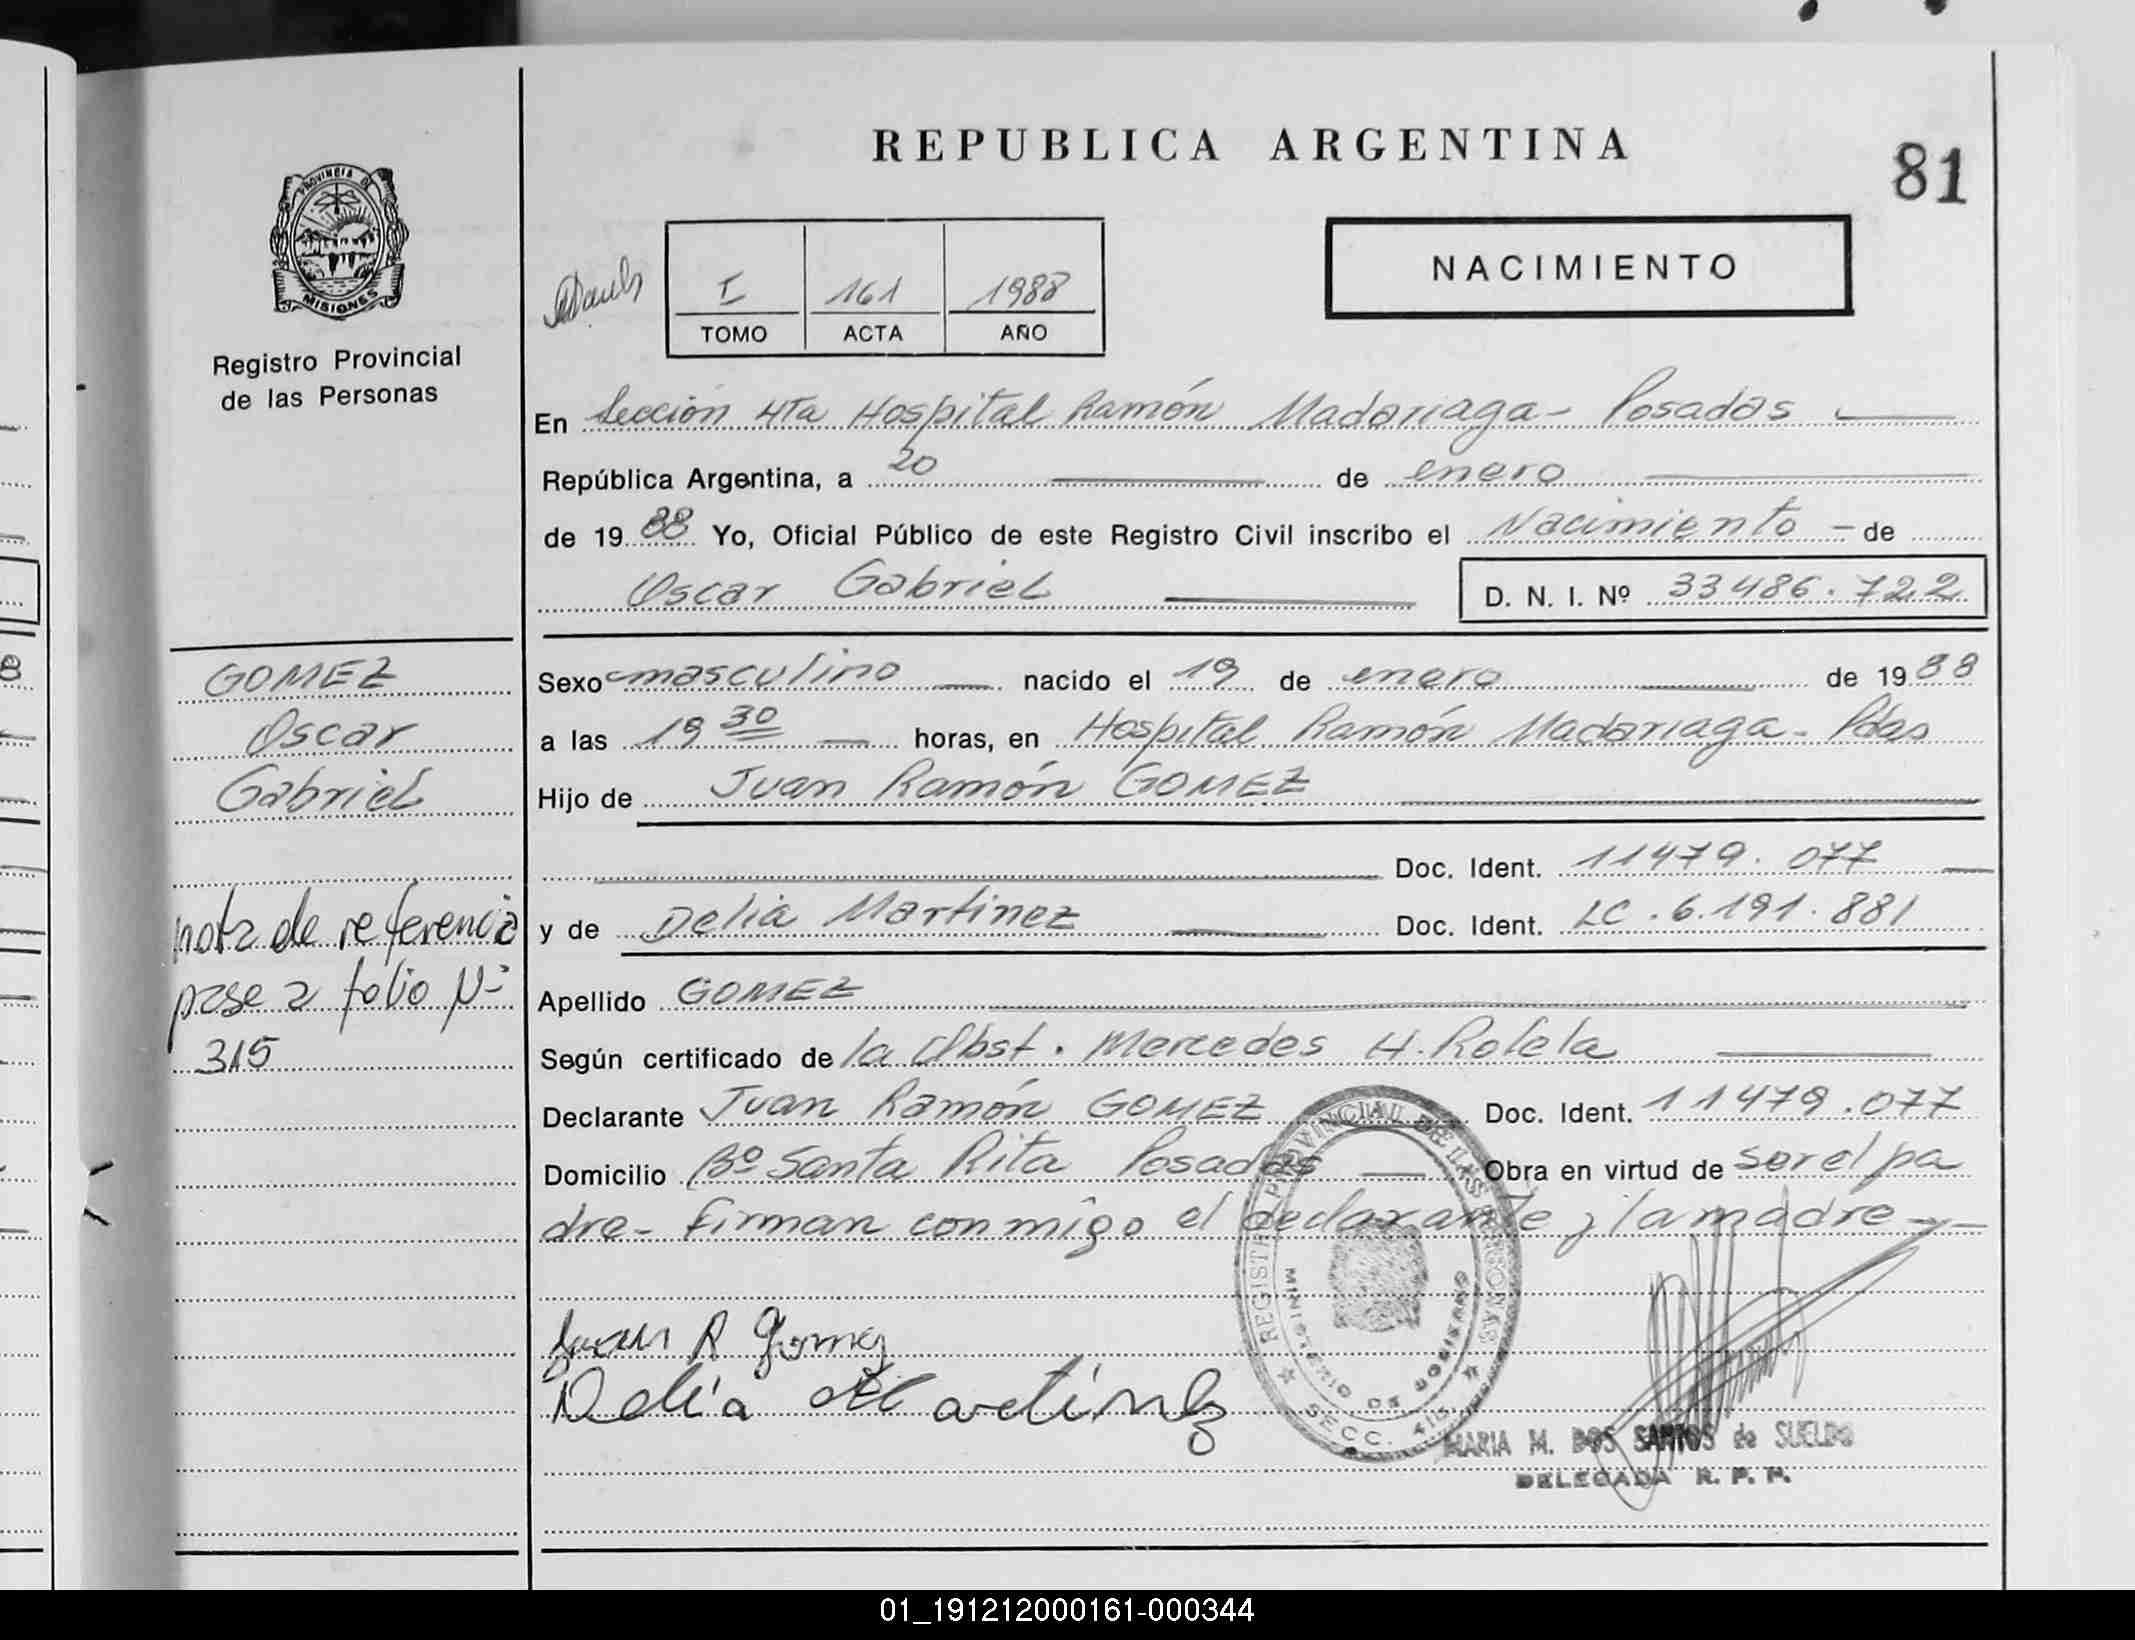 REPUBLICA ARGENTINA
81
PROVINCIA DE
MISIONES
Registro Provincial
de las Personas
I 161 1988
TOMO ACTA AÑO
NACIMIENTO
En Sección 4Ta Hospital Ramón Madariaga - Posadas
República Argentina, a 20 de enero
de 19 88 Yo, Oficial Público de este Registro Civil inscribo el Nacimiento - de
Oscar Gabriel D. N. I. Nº 33486.722
GOMEZ
Oscar
Gabriel
nota de referencia
pase a folio Nº
315
Sexo masculino nacido el 19 de enero de 19 88
a las 19 30 horas, en Hospital Ramón Madariaga - Pdas
Hijo de Juan Ramón GOMEZ
Doc. Ident. 11479.077
y de Delia Martinez Doc. Ident. LC.6.191.881
Apellido GOMEZ
Según certificado de la Obst. Mercedes H. Rolela
Declarante Juan Ramón GOMEZ Doc. Ident. 11479.077
Domicilio Bº Santa Rita Posadas Obra en virtud de ser el pa
dre - firman conmigo el declarante y la madre -
Juan R Gomez
Delia Martinez
REGISTRO PROVINCIAL DE LAS PERSONAS
MINISTERIO DE GOBIERNO
SECC. 4ta.
MARIA M. DOS SANTOS de SUELDO
DELEGADA R. P. P.
01_191212000161-000344